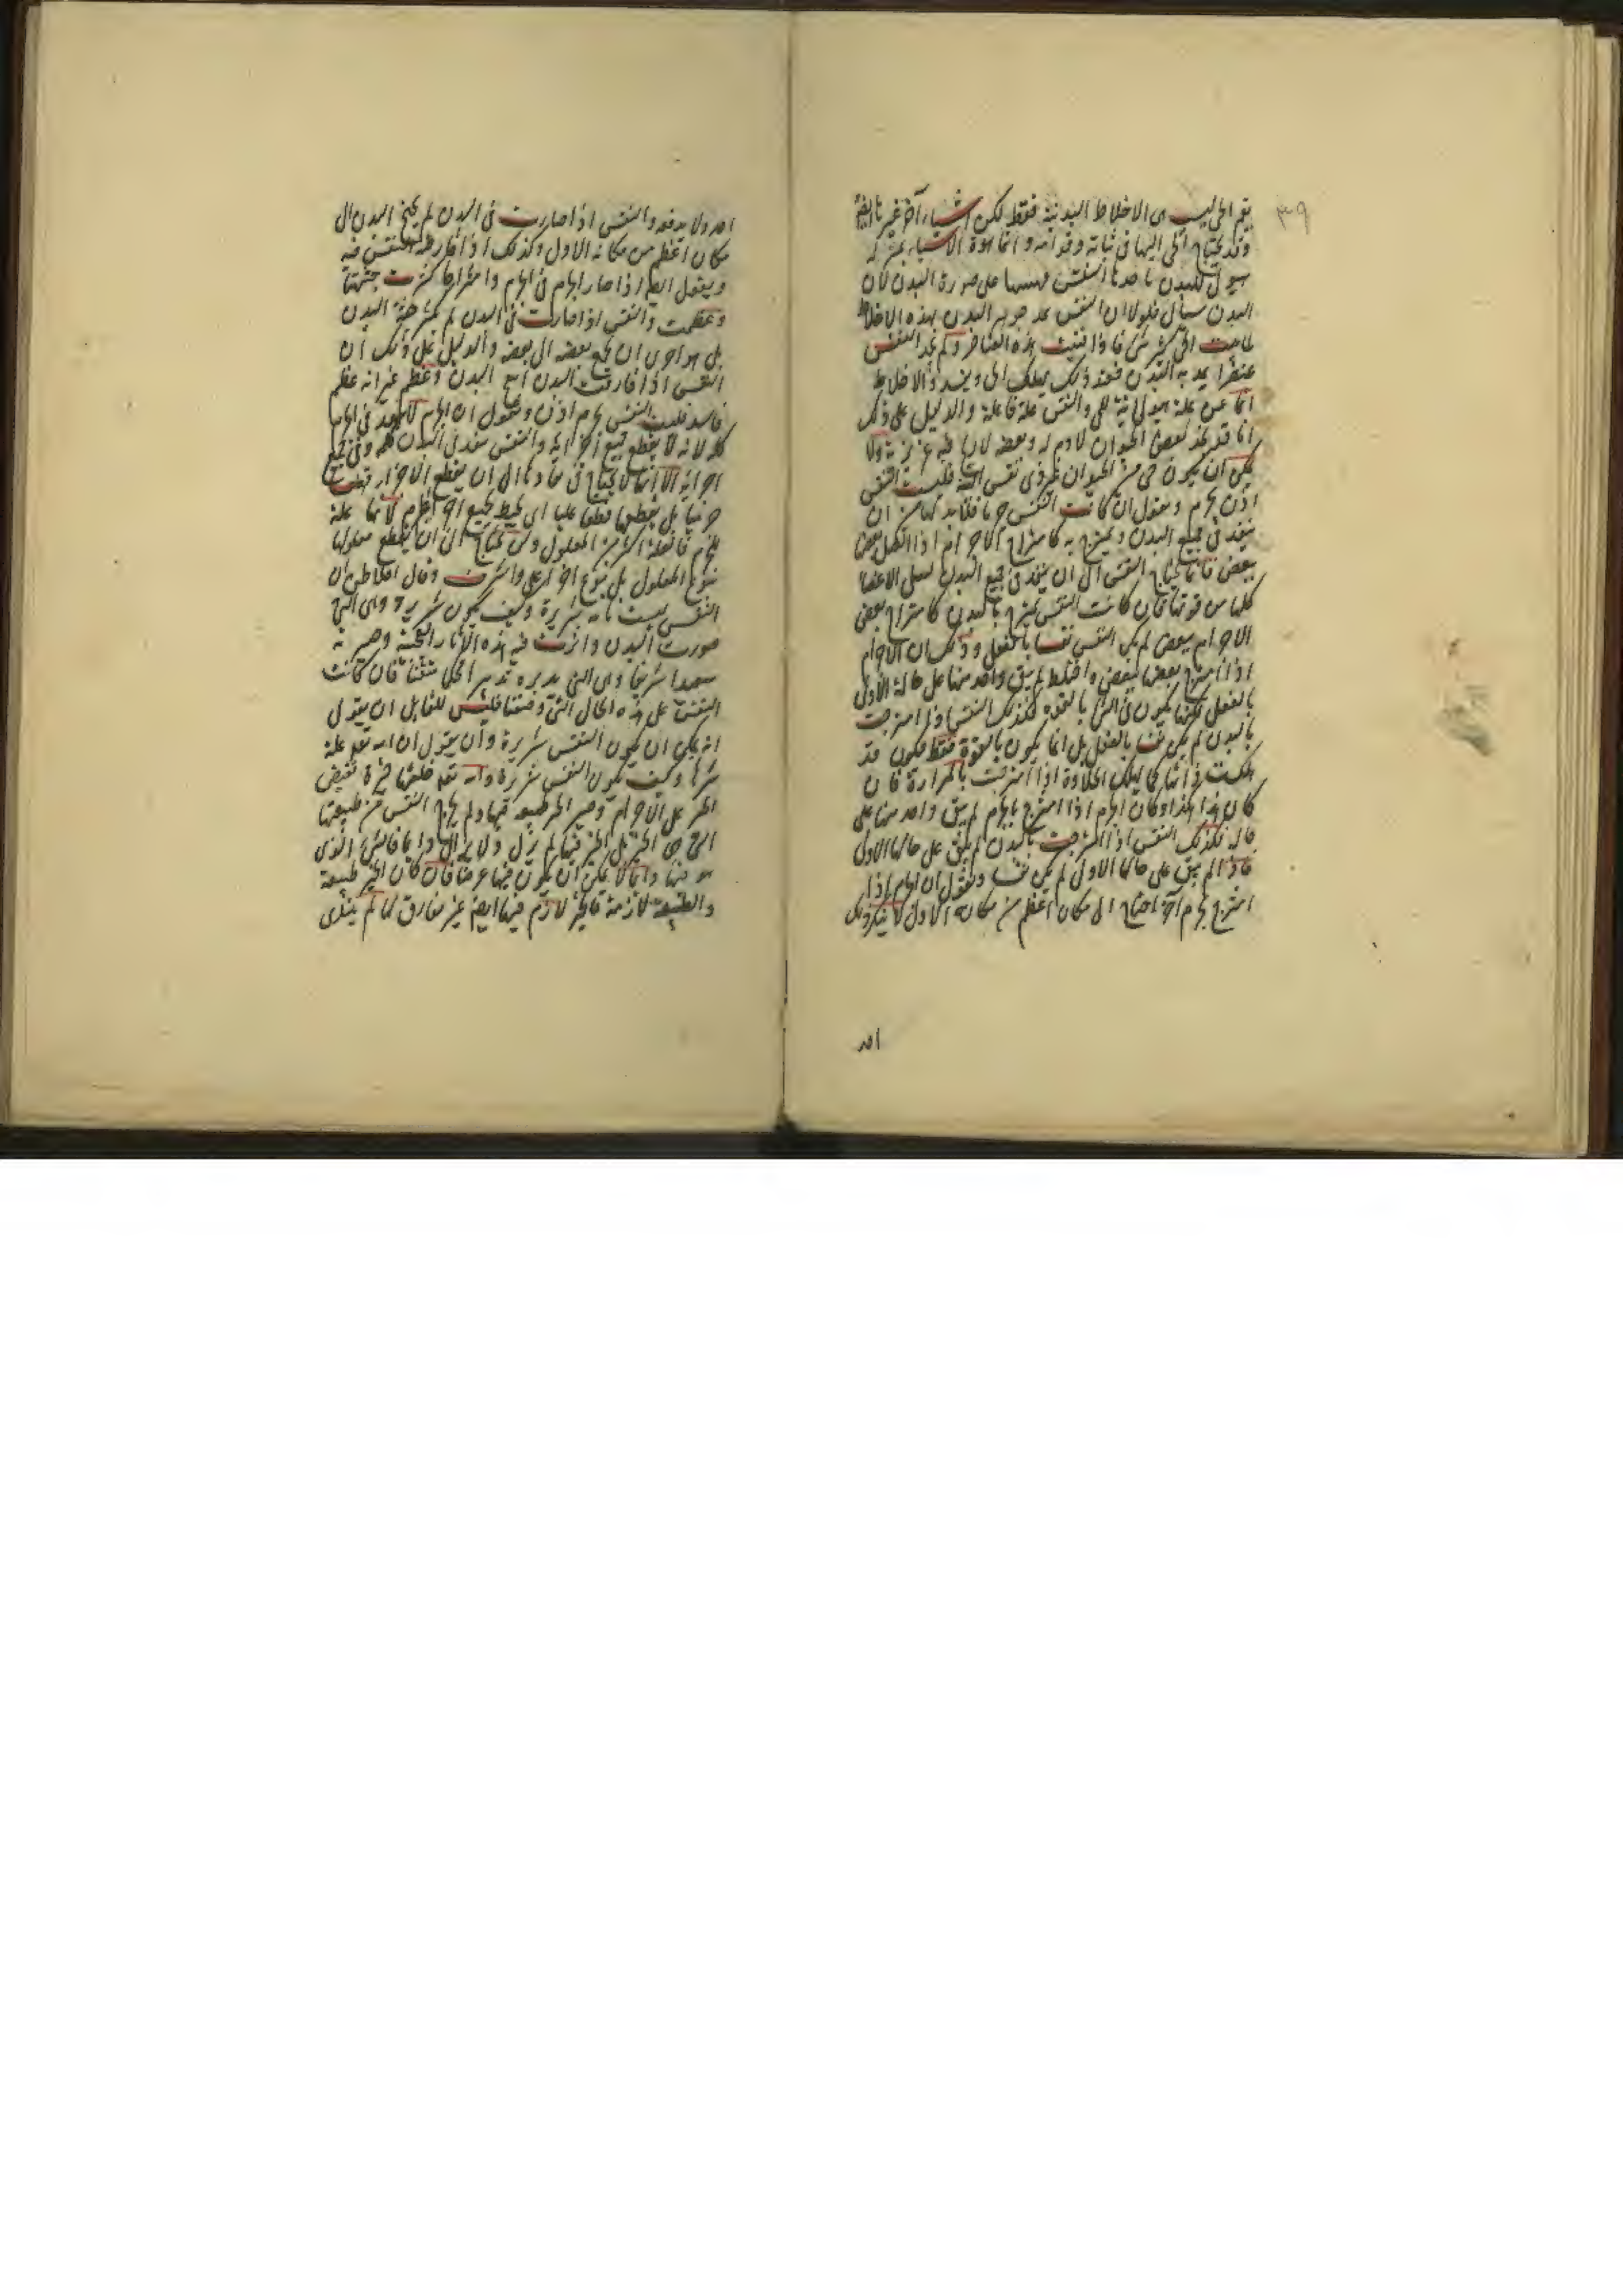 ٣٩
يقم الحي ليست هي الاخلاط البدنية فقط لكن اشياء آخر غير تا ايضا
وقد يحتاج الحي اليها في ثباته وقوامه وانما هذه الاشياء بمنزلة
هيولى للبدن ياخذها النفس على صورة البدن لان
البدن سيال فلولا ان النفس تمد جوهر البدن بهذه الاخلاط
لما ثبت الحي كثير شي فاذا فنيت هذه العناصر ولم تجد النفس
عنصرا يمد به البدن فعند ذلك يهلك الحي ويفسد والاخلاط
انما هي علة هيولانية للحي والنفس علة فاعلة والدليل على ذلك
انا قد نجد بعض الحيوان لا دم له وبعضه لا ريح فيه غريزية ولا
يمكن ان يكون حي من الحيوان غير ذي نفس البتة فليست النفس
اذن بجرم ونقول ان كانت النفس جرما فلا بد لها من ان
ينفذ في جميع البدن ويمتزج به كامتزاج الاجرام اذا اتصل بعضها
ببعض فانما يحتاج النفس الى ان ينفذ في جميع البدن لينيل الاعضا
كلها من قوتها فان كانت النفس تمتزج بالبدن كامتزاج بعض
الاجرام ببعض لم يكن النفس نفسا بالفعل وذلك ان الاجرام
اذا امتزج بعضها ببعض واختلط لم يبق واحد منها على حاله الاول
بالفعل لكنها يكون في الشئ بالقوة فكذلك النفس اذا امتزجت
بالبدن لم يكن نفسا بالفعل بل انما يكون بالقوة فقط فيكون قد
هلكت ذاتها كما يهلك الحلاوة اذا امتزجت بالمرارة فان
كان هذا هكذا وكان الجرم اذا امتزج بالجرم لم يبق واحد منهما على
حاله فكذلك النفس اذا امتزجت بالبدن لم يبق على حالها الاول
فاذا لم يبق على حالها الاول لم يكن نفسا ونقول ان الجرم اذا
امتزج بجرم آخر احتاج الى مكان اعظم من مكانه الاول لا ينكر ذلك
احد
احد ولا يدفعه والنفس اذا صارت في البدن لم يحتج البدن الى
مكان اعظم من مكانه الاول وكذلك اذا فارقت النفس فيه
ويقول ايضا اذا صار الجرم في الجرم وامتزجا كثرت جثتها
وعظمت والنفس اذا صارت في البدن لم يكثر جثة البدن
بل هو احرى ان يجمع بعضه الى بعضه والدليل على ذلك ان
النفس اذا فارقت البدن البدن وعظم غير انه عظم
فاسد فليست النفس بجرم اذن ونقول ان الجرم لا ينفذ في الجرم
كله لانه لا يقطع جميع اجزائه والنفس ينفذ في البدن كله وفي جميع
اجزائه الا انها لا يحتاج في نفاذها الى ان يقطع الاجزاء قطعا
جزئيا بل يقطعها قطعا كليا اي يحيط بجميع اجزاء الجرم لانها علة
للجرم فالعلة اكثر من المعلول وليس يحتاج الى ان يقطع معلولها
بنوع المعلول بل بنوع آخر اعلى واشرف وقال افلاطن ان
النفس ليست بانه شريرة وكيف يكون شريرة وهي التي
صورت البدن واثرت فيه هذه الآثار العجيبة وصيرته
سعيدا شريفا وهي التي يدبره تدبير الكل متقنا فان كانت
النفس على هذه الحال التي وصفنا فليس للقايل ان يقول
انه يمكن ان يكون النفس شريرة وان يقول ان الله تعالى علة
شرها وكيف يكون النفس شريرة والله تعالى خلقها خيرة تفيض
الخير على الاجرام وصير الخير طبيعة فيها ولم يخرج النفس من طبيعتها
التي هي الخير بل الخير فيها لم يزل ولا يزال دايما فالشئ الذي
هو فيها دايما لا يمكن ان يكون فيها عرضا فان كان الخير طبيعة
والطبيعة لازمة فالخير لازم فيها ايضا غير مفارق لها لم يبتدى